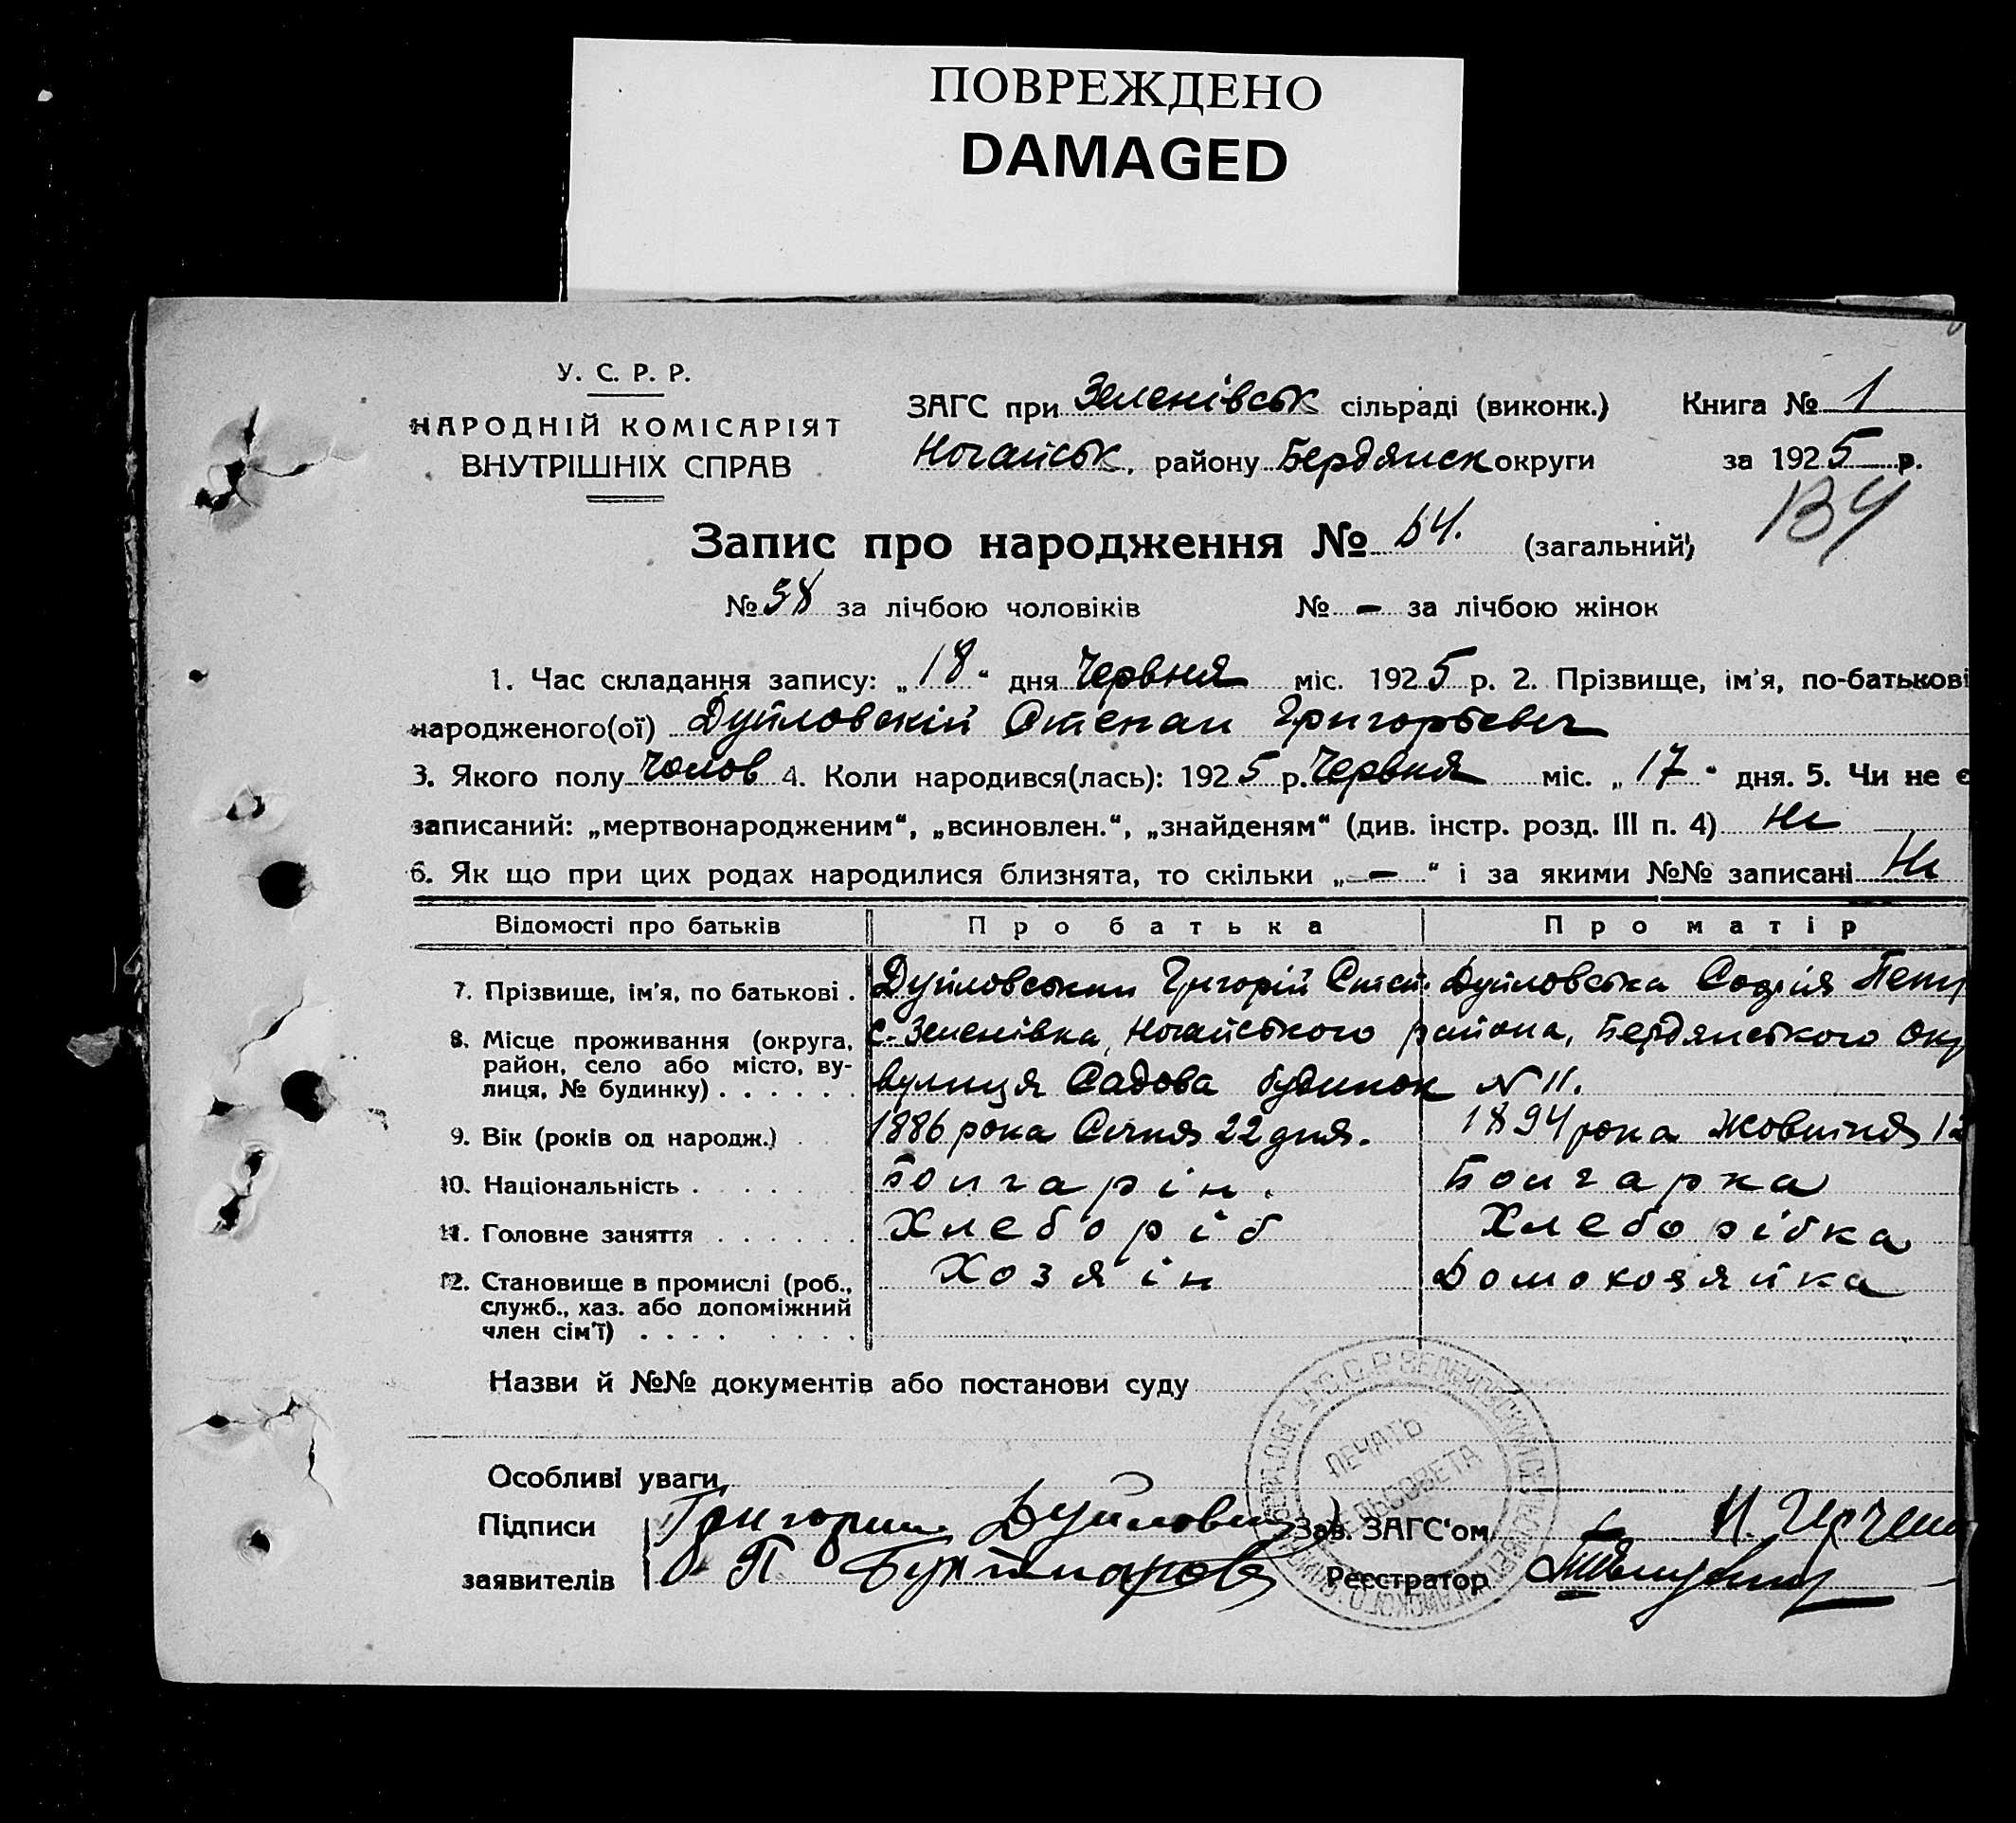 ПОВРЕЖДЕНО
DAMAGED
У. С. Р. Р.
НАРОДНІЙ КОМІСАРІЯТ
ВНУТРІШНІХ СПРАВ
ЗАГС при Зеленівськ сільраді (виконк.) Книга № 1
Ногайськ, району Бердянск округи за 1925 р.
134
Запис про народження № 64. (загальний)
№ 38 за лічбою чоловіків № — за лічбою жінок
1. Час складання запису: „18“ дня Червня міс. 1925 р. 2. Прізвище, ім'я, по-батькові
народженого(ої) Дуйловскій Степан Григорьевич
3. Якого полу Чолов 4. Коли народився(лась): 1925 р. Червня міс. „17“ дня. 5. Чи не є
записаний: „мертвонародженим“, „всиновлен.“, „знайденям“ (див. інстр. розд. III п. 4) Ні
6. Як що при цих родах народилися близнята, то скільки „—“ і за якими №№ записані Ні
Відомості про батьків Про батька Про матір
7. Прізвище, ім'я, по батькові . Дуйловський Григорій Степ. Дуйловська Софія Петр
8. Місце проживання (округа, с. Зеленівка, Ногайського района, Бердянського Окр
район, село або місто, ву-
лиця, № будинку) . . . . . . вулиця Садова будинок № 11.
9. Вік (років од народж.) 1886 рока Січня 22 дня. 1894 рока Жовтня 12
10. Національність . . . . . Болгарін. Болгарка
11. Головне заняття . . . . . . Хлебороб Хлеборібка
12. Становище в промислі (роб., Хозяін Домохозяйка
служб., хаз. або допоміжний
член сім'ї) . . . . . . . .
Назви й №№ документів або постанови суду
Особливі уваги
Підписи Григорий Дуйловский Зав. ЗАГС'ом
заявителів П Реєстратор
ПЕЧАТЬ
СЕЛЬСОВЕТА